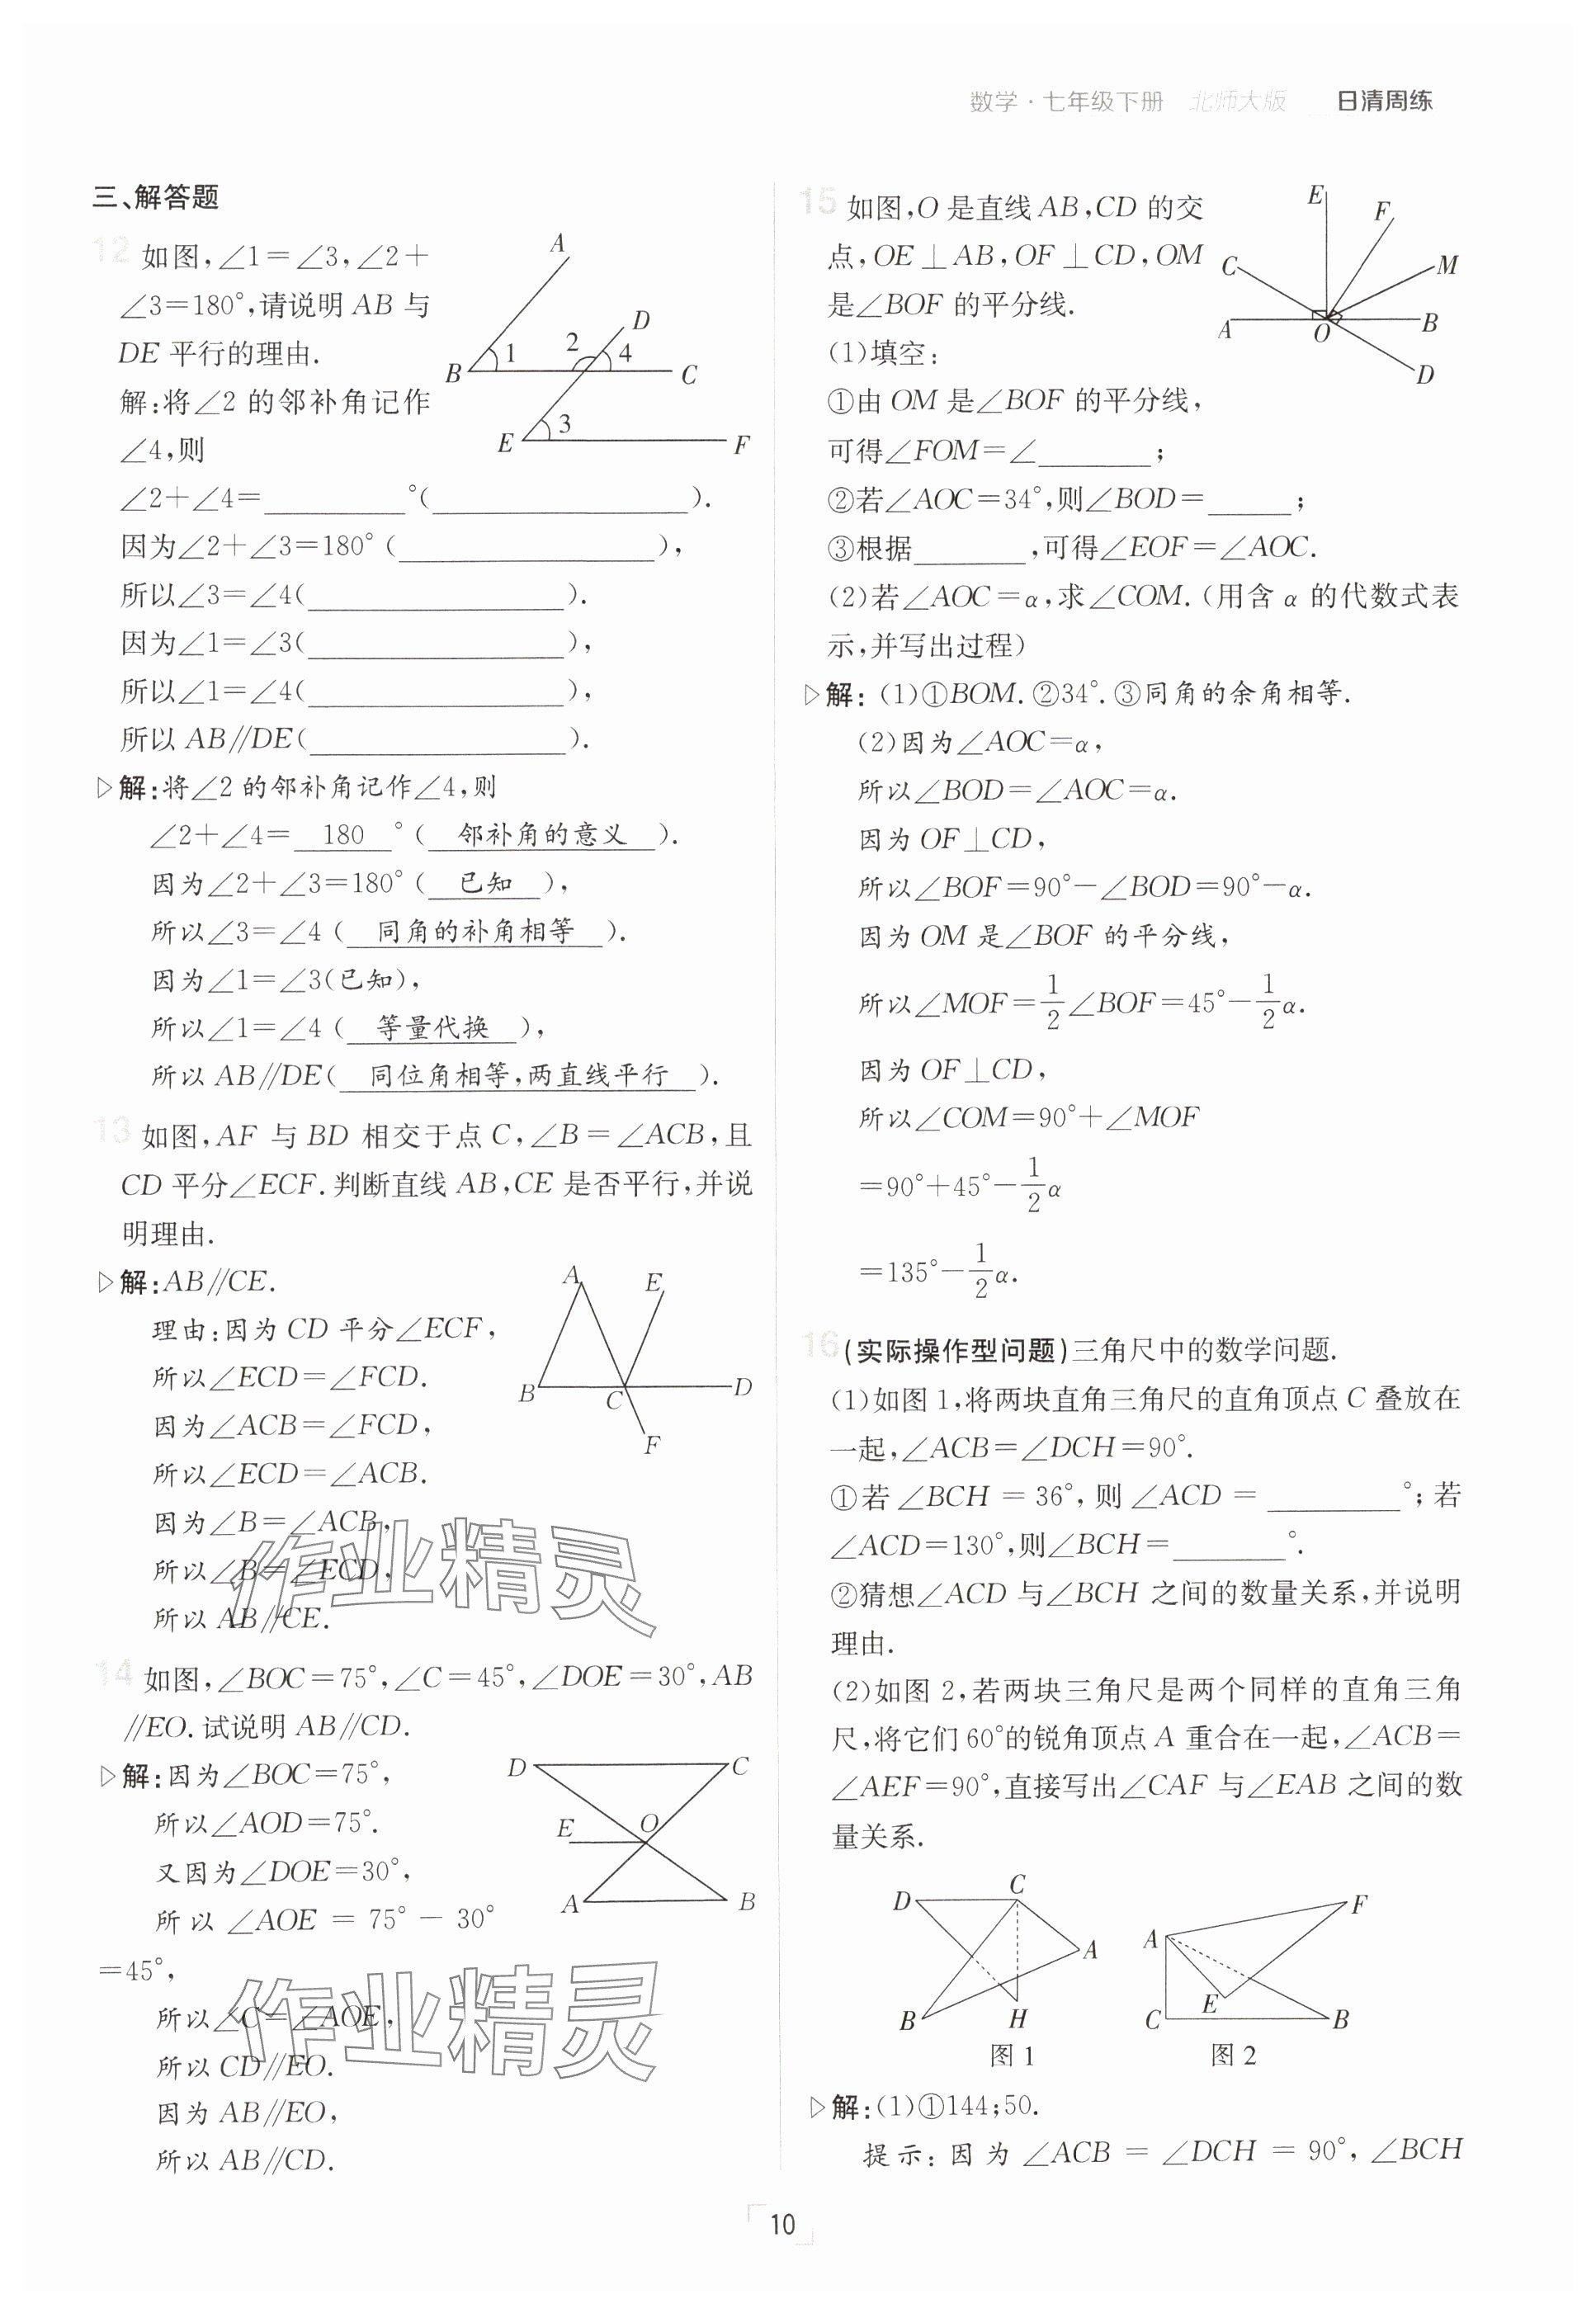 数学·七年级下册 北师大版 日清周练
三、解答题
12 如图,∠1=∠3,∠2+
∠3=180°,请说明 AB 与
DE 平行的理由.
解:将∠2 的邻补角记作
∠4,则
∠2+∠4=________°(________________).
因为∠2+∠3=180°(________________),
所以∠3=∠4(________________).
因为∠1=∠3(________________),
所以∠1=∠4(________________),
所以 AB∥DE(________________).
A
D
1
2
4
B
C
3
E
F
▷解:将∠2 的邻补角记作∠4,则
∠2+∠4= 180 °( 邻补角的意义 ).
因为∠2+∠3=180°( 已知 ),
所以∠3=∠4( 同角的补角相等 ).
因为∠1=∠3(已知),
所以∠1=∠4( 等量代换 ),
所以 AB∥DE( 同位角相等,两直线平行 ).
13 如图,AF 与 BD 相交于点 C,∠B=∠ACB,且
CD 平分∠ECF.判断直线 AB,CE 是否平行,并说
明理由.
▷解:AB∥CE.
理由:因为 CD 平分∠ECF,
所以∠ECD=∠FCD.
因为∠ACB=∠FCD,
所以∠ECD=∠ACB.
因为∠B=∠ACB,
所以∠B=∠ECD,
所以 AB∥CE.
A
E
B
C
D
F
作业精灵
14 如图,∠BOC=75°,∠C=45°,∠DOE=30°,AB
∥EO.试说明 AB∥CD.
▷解:因为∠BOC=75°,
所以∠AOD=75°.
又因为∠DOE=30°,
所以 ∠AOE = 75° - 30°
=45°,
所以∠C=∠AOE,
所以 CD∥EO.
因为 AB∥EO,
所以 AB∥CD.
D
C
E
O
A
B
作业精灵
15 如图,O 是直线 AB,CD 的交
点,OE⊥AB,OF⊥CD,OM
是∠BOF 的平分线.
(1)填空:
①由 OM 是∠BOF 的平分线,
可得∠FOM=∠________;
②若∠AOC=34°,则∠BOD=______;
③根据________,可得∠EOF=∠AOC.
(2)若∠AOC=α,求∠COM.(用含 α 的代数式表
示,并写出过程)
E
F
C
M
A
O
B
D
▷解:(1)①BOM.②34°.③同角的余角相等.
(2)因为∠AOC=α,
所以∠BOD=∠AOC=α.
因为 OF⊥CD,
所以∠BOF=90°-∠BOD=90°-α.
因为 OM 是∠BOF 的平分线,
所以∠MOF=1/2∠BOF=45°-1/2α.
因为 OF⊥CD,
所以∠COM=90°+∠MOF
=90°+45°-1/2α
=135°-1/2α.
16 (实际操作型问题)三角尺中的数学问题.
(1)如图 1,将两块直角三角尺的直角顶点 C 叠放在
一起,∠ACB=∠DCH=90°.
①若 ∠BCH = 36°, 则 ∠ACD = ________°; 若
∠ACD=130°,则∠BCH=________°.
②猜想∠ACD 与∠BCH 之间的数量关系,并说明
理由.
(2)如图 2,若两块三角尺是两个同样的直角三角
尺,将它们 60°的锐角顶点 A 重合在一起,∠ACB=
∠AEF=90°,直接写出∠CAF 与∠EAB 之间的数
量关系.
D
C
A
B
H
图 1
F
A
E
C
B
图 2
▷解:(1)①144;50.
提示: 因为 ∠ACB = ∠DCH = 90°, ∠BCH
10